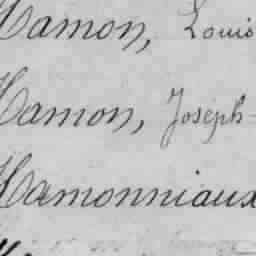 Hamon, Louis
Hamon, Joseph-
Hamonniaux